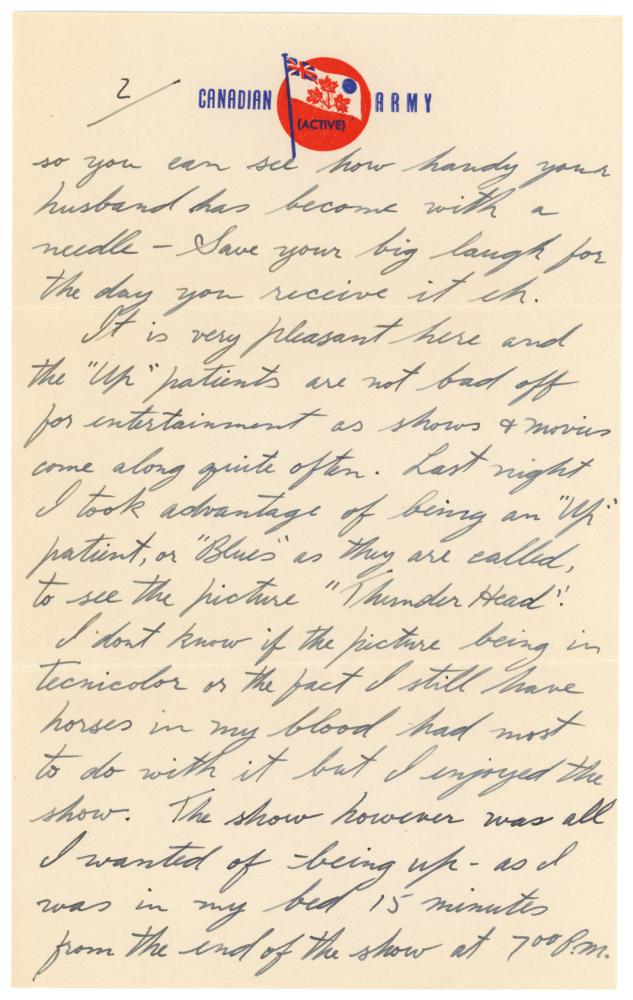 2/
CANADIAN ARMY
(ACTIVE)
so you can see how handy your
husband has become with a
needle – Save your big laugh for
the day you receive it eh.
It is very pleasant here and
the "Up" patients are not bad off
for entertainment as shows & movies
come along quite often. Last night
I took advantage of being an "Up"
patient, or "Blues" as they are called,
to see the picture "Thunder Head".
I dont know if the picture being in
tecnicolor or the fact I still have
horses in my blood had most
to do with it but I enjoyed the
show. The show however was all
I wanted of - being up - as I
was in my bed 15 minutes
from the end of the show at 7⁰⁰ P.m.